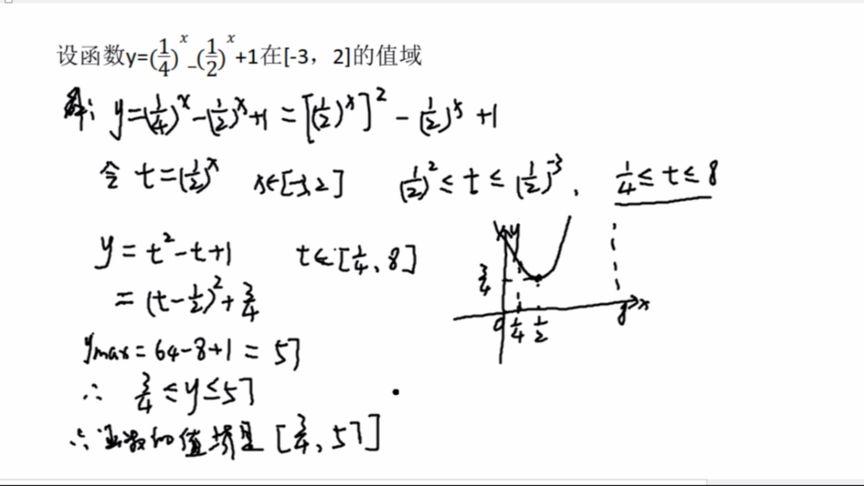 设函数y=(1/4)^x-(1/2)^x+1在[-3，2]的值域
解: y=(1/4)^x-(1/2)^x+1=[(1/2)^x]^2-(1/2)^x+1
令 t=(1/2)^x x∈[-3,2] (1/2)^2≤t≤(1/2)^-3, 1/4≤t≤8
y=t^2-t+1 t∈[1/4,8]
=(t-1/2)^2+3/4
ymax=64-8+1=57
∴ 3/4≤y≤57
∴函数的值域是[3/4,57]
y
3/4
0 1/4 1/2 8 x